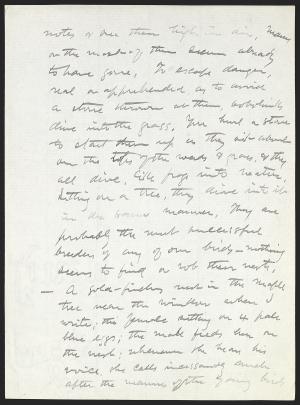 notes of over them high in air, many
or the most of them seem already
to have gone. To escape danger,
real or apprehended as to avoid
a stone thrown at them, bobolinks
dive into the grass. You hurl a stone
to start them up as they sit about
on the tops of the weeds & grass, & they
all dive, like frogs into water.
Sitting on a tree, they dive into it
in the same manner. They are
probably the most successful
breeders of any of our birds—nothing
seems to find or rob their nests.
— A gold-finches nest in the maple
tree near the window where I
write; the female sitting on 4 pale
blue eggs; the male feeds her on
the nest; whenever she hears his
voice, she calls incessantly, much
after the manner of the young birds